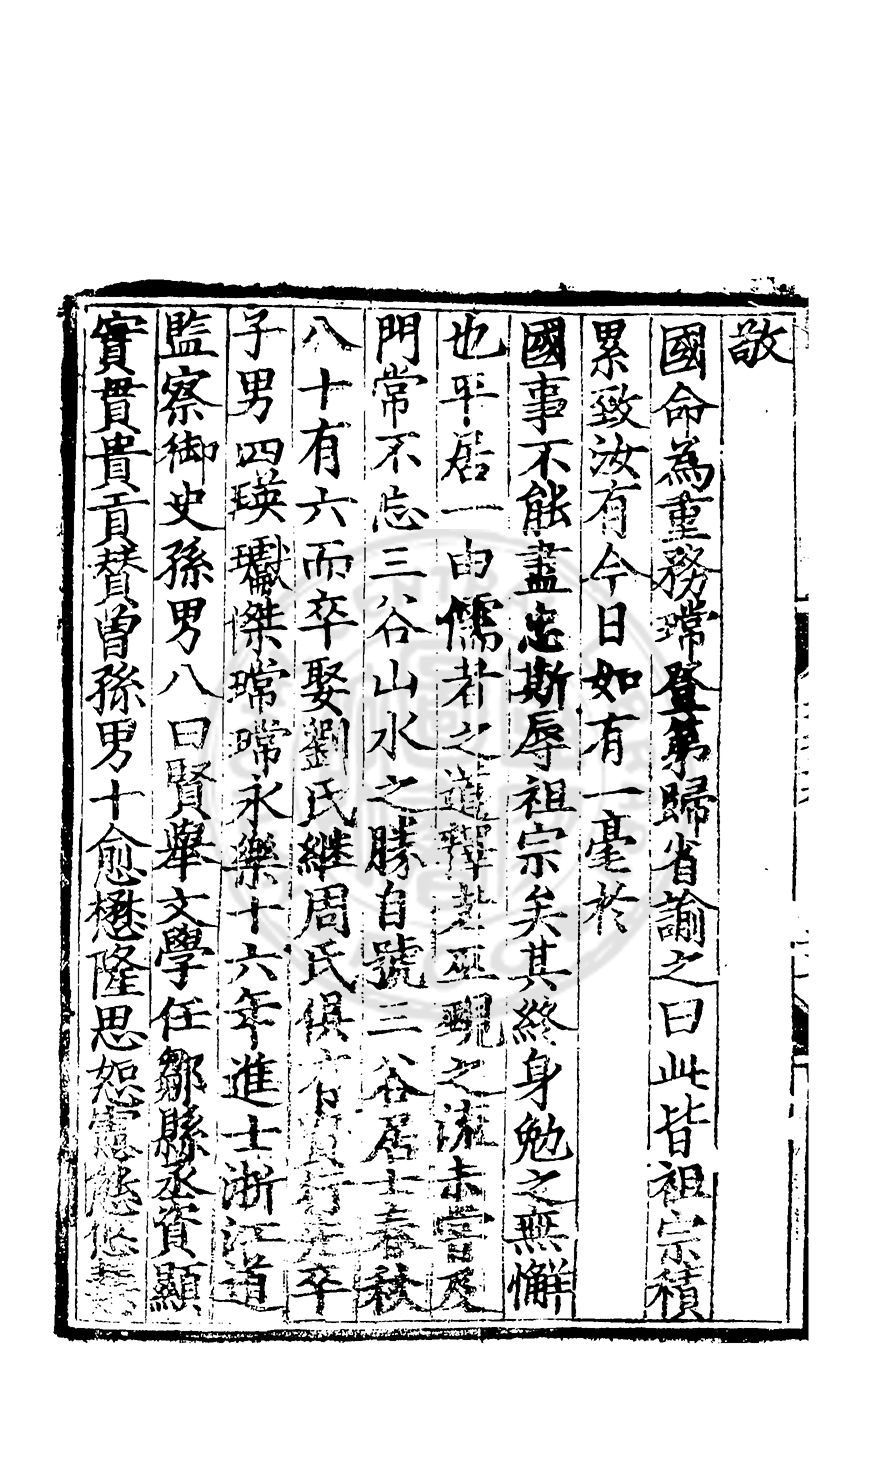 敬
國命為重務瑺登第歸省諭之曰此皆祖宗積
累致汝有今日如有一毫於
國事不能盡忠斯辱祖宗矣其終身勉之無懈
也平居一由儒者之道釋老巫覡之流未嘗及
門常不忘三谷山水之勝自號三谷居士春秋
八十有六而卒娶劉氏継周氏俱有賢行先卒
子男四瑛瓛傑瑺瑺永樂十六年進士浙江道
監察御史孫男八曰賢舉文學任鄒縣丞資顯
實貫貴貢賛曾孫男十愈懋隆思恕憲悠